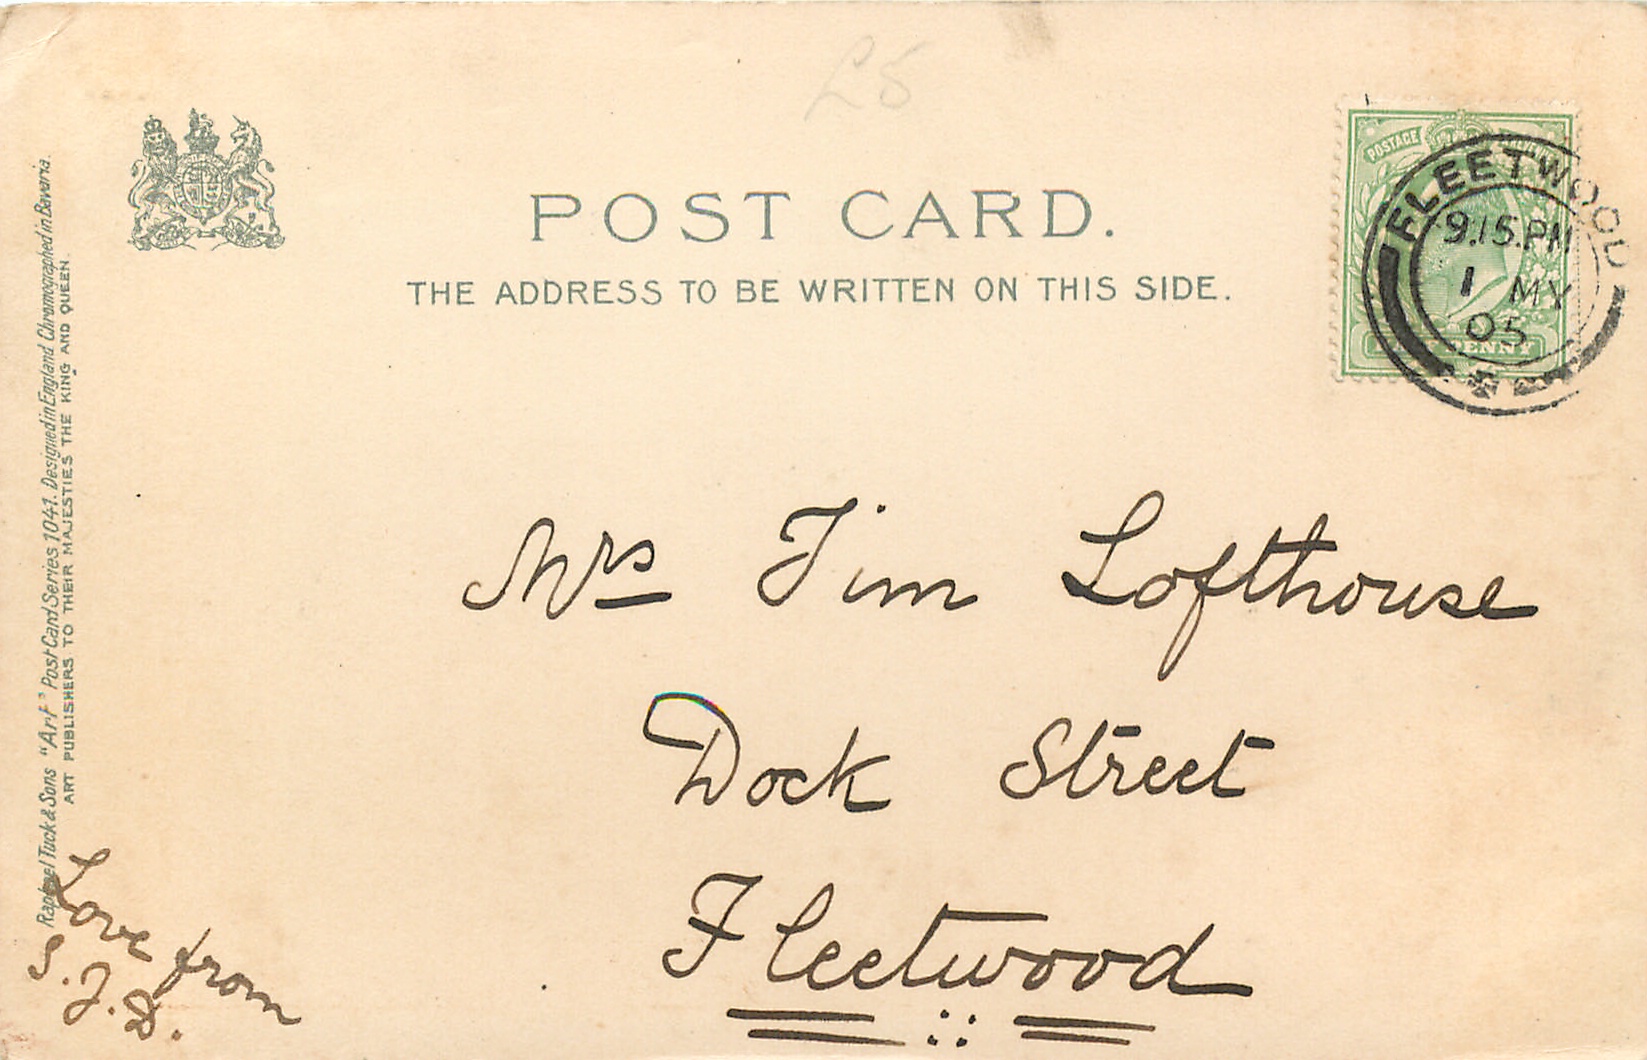 £5
POST CARD.
THE ADDRESS TO BE WRITTEN ON THIS SIDE.
POSTAGE
FLEETWOOD
9.15.PM
1 MY
05
PENNY
Mrs Jim Lofthouse
Dock Street
Fleetwood
Love from
S. J. D.
Raphael Tuck & Sons "Art" Post Card Series 1041. Designed in England Chromographed in Bavaria.
ART PUBLISHERS TO THEIR MAJESTIES THE KING AND QUEEN.